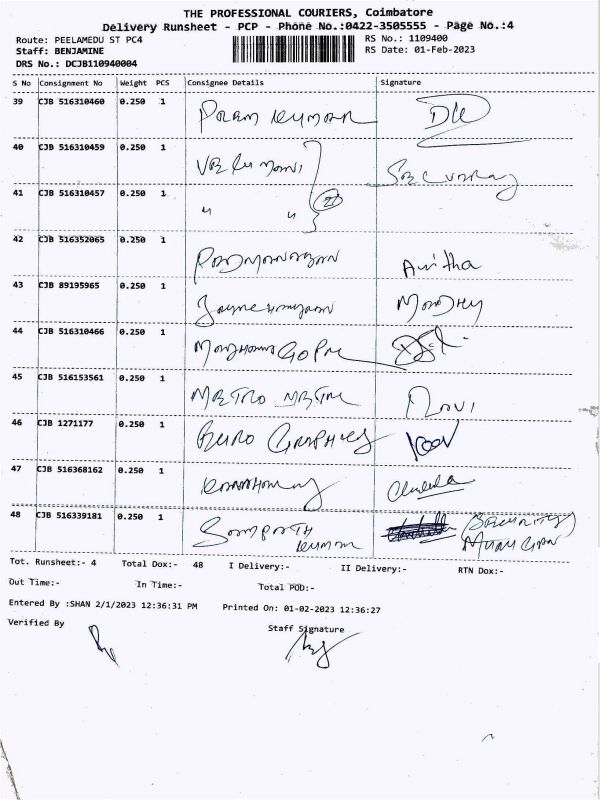 THE PROFESSIONAL COURIERS, Coimbatore
Delivery Runsheet - PCP - Phone No.:0422-3505555 - Page No.:4
Route: PEELAMEDU ST PC4 RS No.: 1109400
Staff: BENJAMINE RS Date: 01-Feb-2023
DRS No.: DCJB110940004
S No Consignment No Weight PCS Consignee Details Signature
39 CJB 516310460 0.250 1 PREM KUMAR
40 CJB 516310459 0.250 1 VELUMANI Security
41 CJB 516310457 0.250 1 " "
42 CJB 516352065 0.250 1 PADMANABAN Anitha
43 CJB 89195965 0.250 1
44 CJB 516310466 0.250 1
45 CJB 516153561 0.250 1 METRO METAL Ravi
46 CJB 1271177 0.250 1 EURO GRAPHICS
47 CJB 516368162 0.250 1
48 CJB 516339181 0.250 1 SAMPATH (SECURITY)
KUMAR
Tot. Runsheet:- 4 Total Dox:- 48 I Delivery:- II Delivery:- RTN Dox:-
Out Time:- In Time:- Total POD:-
Entered By :SHAN 2/1/2023 12:36:31 PM Printed On: 01-02-2023 12:36:27
Verified By Staff Signature